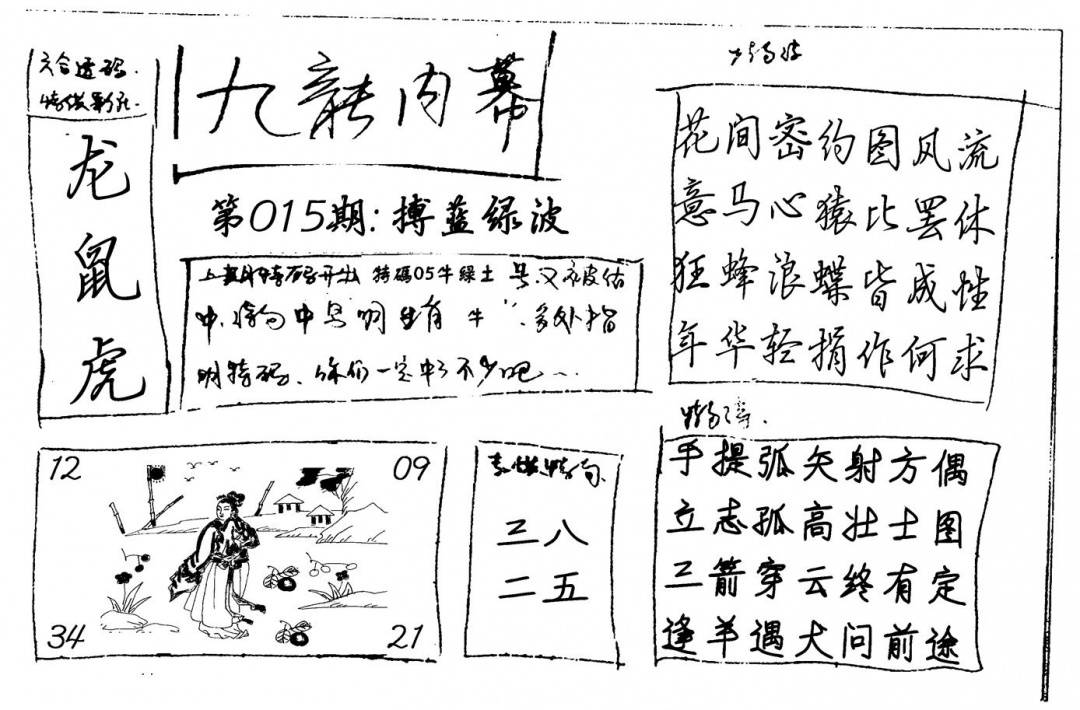 六合透码.
龙
鼠
虎
九龍内幕
第015期:搏蓝绿波
上期特码开出 特碼05牛綠土 号又被估
中,
中 牛" 多处指
明特码、你们一定中了不少吧…
花间密约图风流
意马心猿比罢休
狂蜂浪蝶皆成性
年华轻捐作何求
12
09
34
21
三八
二五
手提弧矢射方偶
立志孤高壮士图
三箭穿云终有定
逢羊遇犬问前途